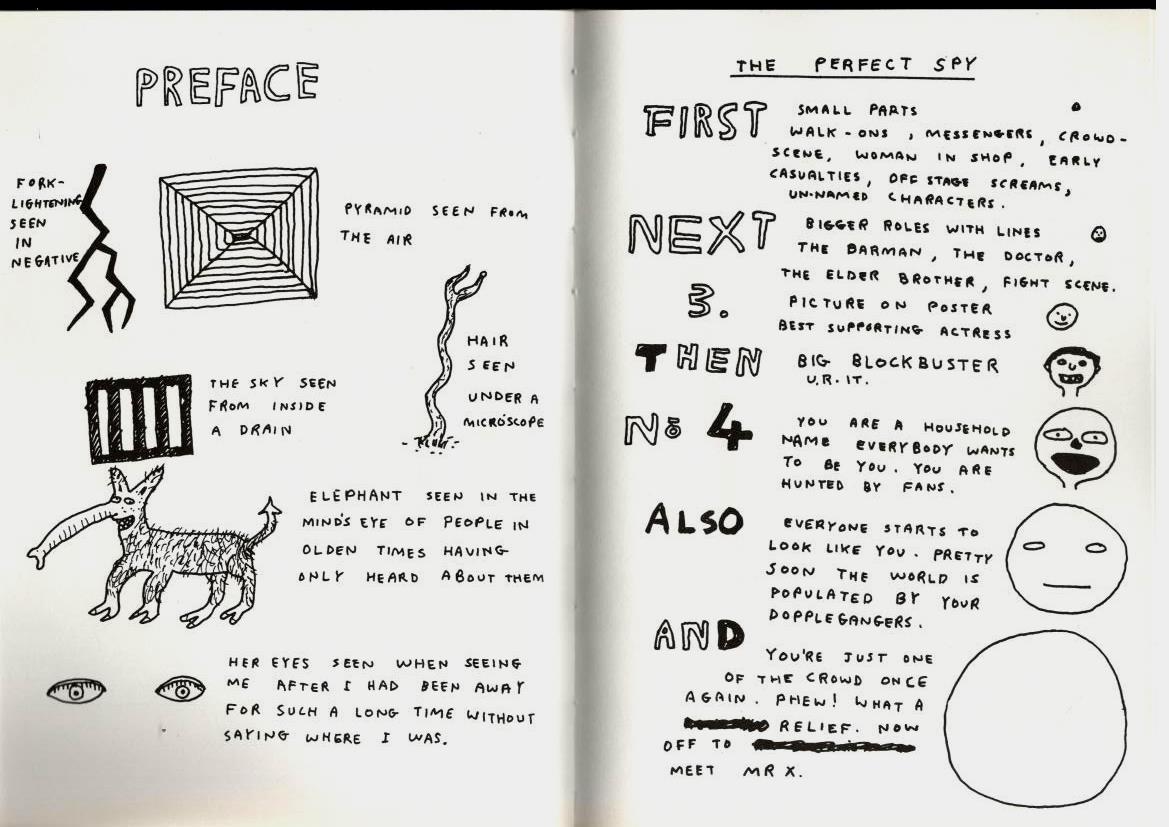 PREFACE
FORK-
LIGHTENING
SEEN
IN
NEGATIVE
PYRAMID SEEN FROM
THE AIR
HAIR
SEEN
UNDER A
MICROSCOPE
THE SKY SEEN
FROM INSIDE
A DRAIN
ELEPHANT SEEN IN THE
MIND'S EYE OF PEOPLE IN
OLDEN TIMES HAVING
ONLY HEARD ABOUT THEM
HER EYES SEEN WHEN SEEING
ME AFTER I HAD BEEN AWAY
FOR SUCH A LONG TIME WITHOUT
SAYING WHERE I WAS.
THE PERFECT SPY
FIRST
SMALL PARTS
WALK-ONS, MESSENGERS, CROWD-
SCENE, WOMAN IN SHOP, EARLY
CASUALTIES, OFF STAGE SCREAMS,
UN-NAMED CHARACTERS.
NEXT
BIGGER ROLES WITH LINES
THE BARMAN, THE DOCTOR,
THE ELDER BROTHER, FIGHT SCENE.
3.
PICTURE ON POSTER
BEST SUPPORTING ACTRESS
THEN
BIG BLOCKBUSTER
U.R.IT.
No 4
YOU ARE A HOUSEHOLD
NAME EVERYBODY WANTS
TO BE YOU. YOU ARE
HUNTED BY FANS.
ALSO
EVERYONE STARTS TO
LOOK LIKE YOU. PRETTY
SOON THE WORLD IS
POPULATED BY YOUR
DOPPLEGANGERS.
AND
YOU'RE JUST ONE
OF THE CROWD ONCE
AGAIN. PHEW! WHAT A
RELIEF. NOW
OFF TO
MEET MR X.